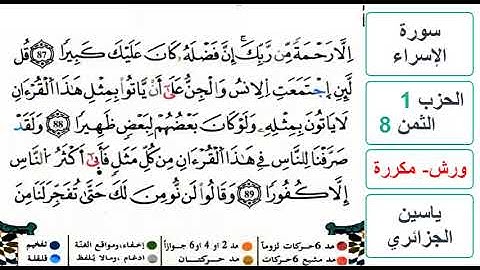 إِلَّا رَحْمَةً مِّن رَّبِّكَ إِنَّ فَضْلَهُۥ كَانَ عَلَيْكَ كَبِيرًا 87 قُل
لَّئِنِ اِجْتَمَعَتِ اِلِانسُ وَالْجِنُّ عَلَىٰٓ أَنْ يَّاتُواْ بِمِثْلِ هَٰذَا اَلْقُرْءَانِ
لَا يَاتُونَ بِمِثْلِهِۦ وَلَوْ كَانَ بَعْضُهُمْ لِبَعْضٍ ظَهِيرًا 88 وَلَقَدْ
صَرَّفْنَا لِلنَّاسِ فِي هَٰذَا اَلْقُرْءَانِ مِن كُلِّ مَثَلٍ فَأَبَىٰٓ أَكْثَرُ اُلنَّاسِ
إِلَّا كُفُورًا 89 وَقَالُواْ لَن نُّومِنَ لَكَ حَتَّىٰ تُفَجِّرَ لَنَا مِنَ
مد 6 حركات لزوماً
مد 2 أو 4 أو 6 جوازاً
إخفاء، ومواقع الغنّة
تفخيم
مد مشبع 6 حركات
مد حركتان
ادغام، ومالا يُلفظ
قلقلة
سورة
الإسراء
الحزب 1
الثمن 8
ورش- مكررة
ياسين
الجزائري